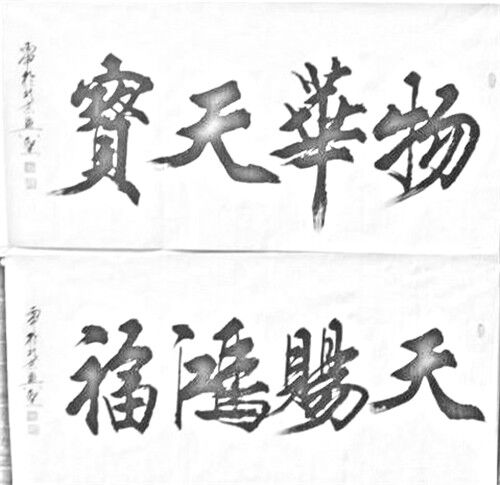 物華天寶
天賜鴻福